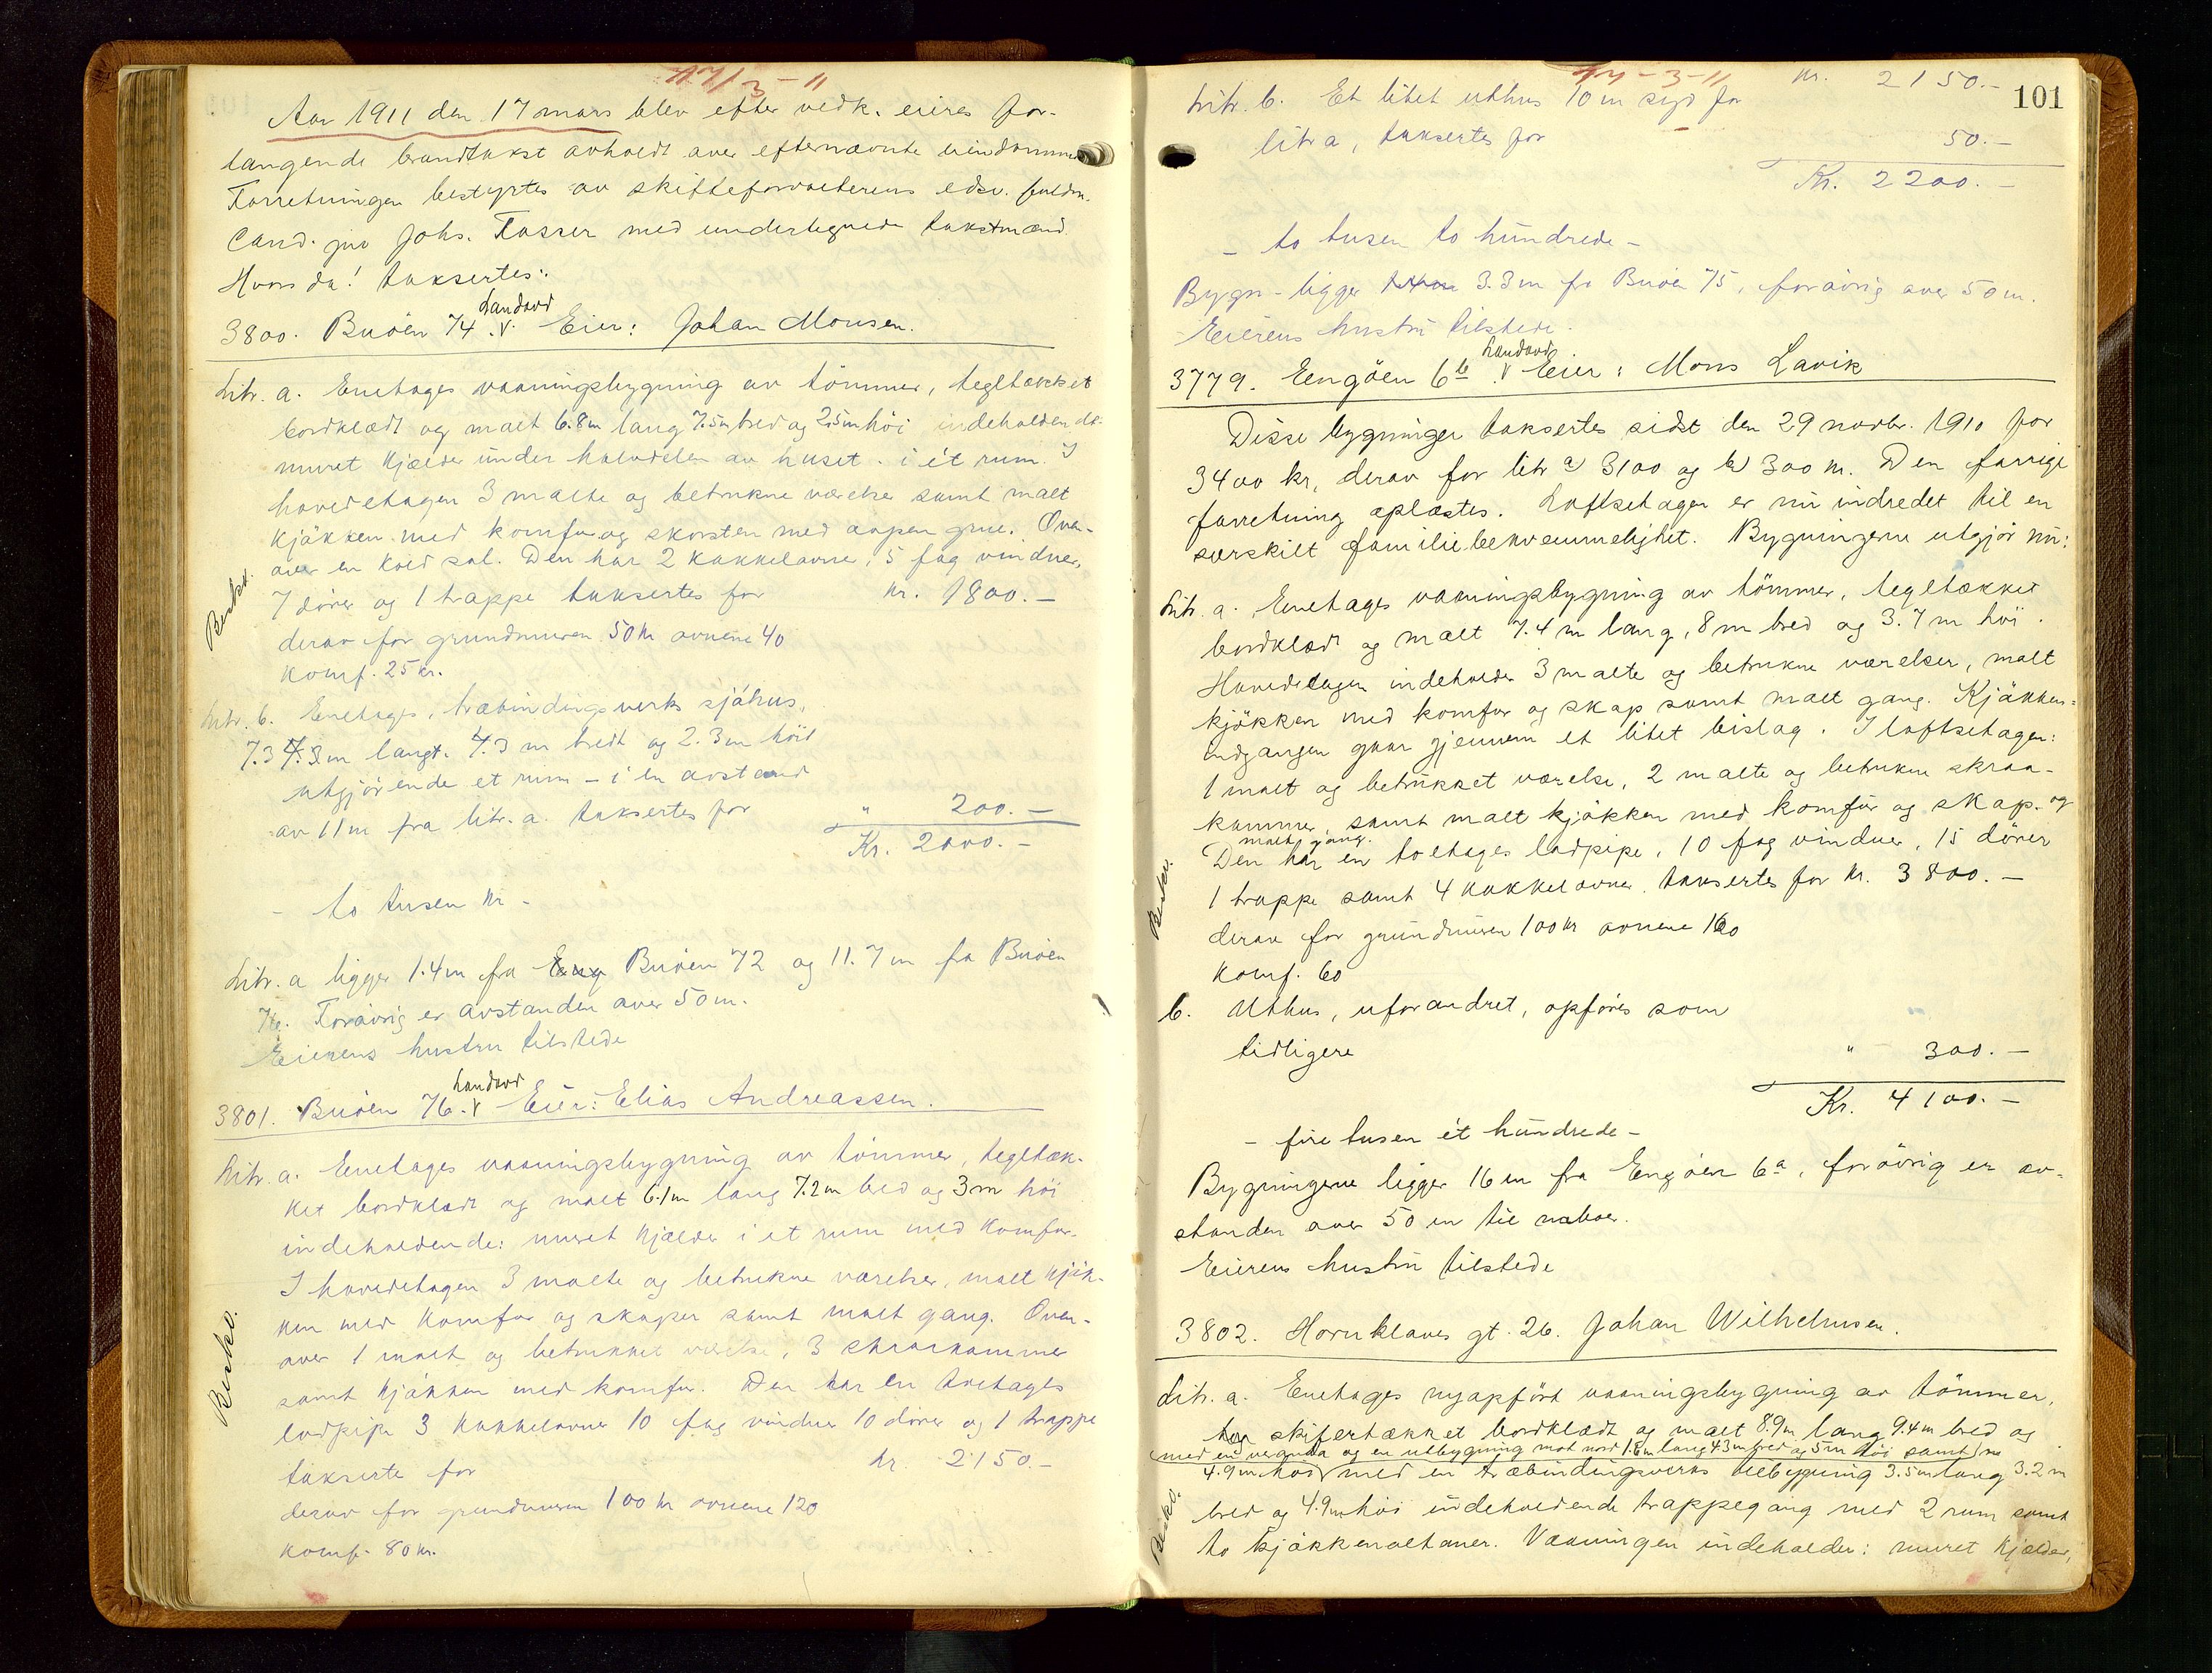 17/3-11
Aar 1911 den 17 mars blev efter vedk. eires for-
langende brandtakst avholdt over efternævnte eiendomme
Forretningen bestyrtes av skifteforvalterens edsv. fuldm.
Cand. jur Johs. Tasser med undertegnede takstmænd.
Hvorda! taksertes:
3800. Buöen 74. v. Landord Eier: Johan Monsen.
Litr. a. Enetages vaaningsbygning av tömmer, tegltækket
bordklædt og malt 6.8m lang 7.5m bred og 2.5m höi indeholdende
muret kjælder under halvdelen av huset i ét rum. I
hovedetagen 3 malte og betrukne værelser samt malt
kjökken med komfur og skorsten med aapen grue. Oven-
over en kold sal. Den har 2 kakkelovne, 5 fag vinduer,
7 dörer og 1 trappe taksertes for kr. 1800.-
derav for grundmuren 50 kr ovnene 40
Komf. 25 kr.
Beskr.
Litr. b. Enetages, træbindingsverks sjöhus,
7.3 7.3m langt. 4.3 m bredt og 2.3m höit
utgjörende et rum - i en avstand
av 11m fra litr. a. taksertes for " 200.-
Kr. 2000.-
- to tusen kr -
Litr. a ligger 1.4m fra Eng Buöen 72 og 11.7m fra Buöen
76. Forövrig er avstanden over 50m.
Eierens hustru tilstede
3801. Buöen 76. v Landord Eier: Elias Andreassen.
Litr. a. Enetages vaaningsbygning av tömmer, tegltæk-
ket bordklædt og malt 6.1m lang 7.2m bred og 3m höi
indeholdende: muret kjælder i et rum med komfur.
I hovedetagen 3 malte og betrukne værelser, malt kjök-
ken med komfur og skaper samt malt gang. Oven-
over 1 malt og betrukket værelse, 3 skraakammer
samt kjökken med komfur. Den har en toetages
ludpipe 3 kakkelovne 10 fag vinduer 10 dörer og 1 trappe
takserte for kr. 2150.-
derav for grundmuren 100 kr ovnene 120
Komf. 80 kr.
Beskr.
17-3-11
101
kr. 2150.-
Litr. b. Et litet uthus 10m syd for
litr a, taksertes for 50.-
Kr. 2200.-
- to tusen to hundrede -
Bygn- ligger 3.3m fr Buöen 75, forövrig over 50m.
Eierens hustru tilstede.
3779. Eengöen 6b. v Landord Eier: Mons Lavik
Disse bygninger taksertes sidst den 29 novbr. 1910 for
3400 kr, derav for litr a) 3100 og b) 300 kr. Den forrige
forretning oplæstes. Loftsetagen er nu indredet til en
særskilt familiebekvemmelighet. Bygningerne utgjör nu:
Litr. a. Enetages vaaningsbygning av tömmer, tegltækket
bordklædt og malt 7.4m lang, 8m bred og 3.7m höi.
Hovedetagen indeholder 3 malte og betrukne værelser, malt
kjökken med komfur og skap samt malt gang. Kjökken-
indgangen gaar gjennem et litet bislag. I loftsetagen:
1 malt og betrukket værelse, 2 malte og betrukne skraa-
kammer, samt malt kjökken med komfur og skap. og
malt gang.
Den har en toetages ludpipe, 10 fag vinduer, 15 dörer
1 trappe samt 4 kakkelovner taksertes for kr. 3800.-
derav for grundmuren 100 kr ovnene 160
Komf. 60
Beskr.
b. Uthus, uforandret, opföres som
tidligere " 300.-
Kr. 4100.-
- fire tusen ét hundrede -
Bygningerne ligger 16m fra Engöen 6a, forövrig er av-
standen over 50 m til naboer.
Eierens hustru tilstede
3802. Hornklaves gt. 26. Johan Wilhelmsen.
Litr. a. Enetages nyopfört vaaningsbygning av tömmer,
skifertækket bordklædt og malt 8.9m lang 9.4m bred og
med en veranda og en utbygning mot nord 1.8m lang 4.3m bred og 5m höi samt
4.9m höi v med en træbindingsverks utbygning 3.5m lang 3.2m
bred og 4.9m höi indeholdende trappegang med 2 rum samt
to kjökkenaltaner. Vaaningen indeholder: muret kjælder,
Beskr.